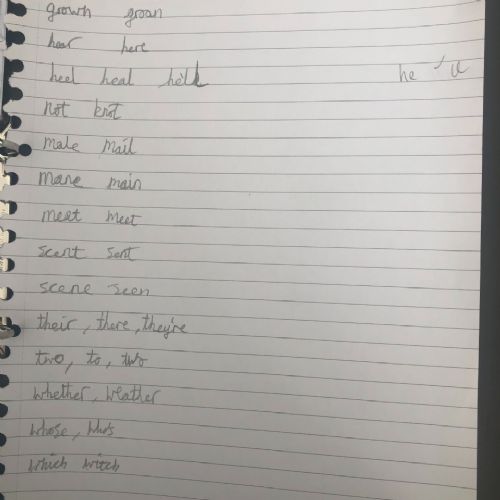 grown groan
hear here
heel heal he'll he 'll
not knot
male mail
mane main
meat meet
scent sent
scene seen
their, there, they're
two, to, two
whether, weather
whose, who's
which witch